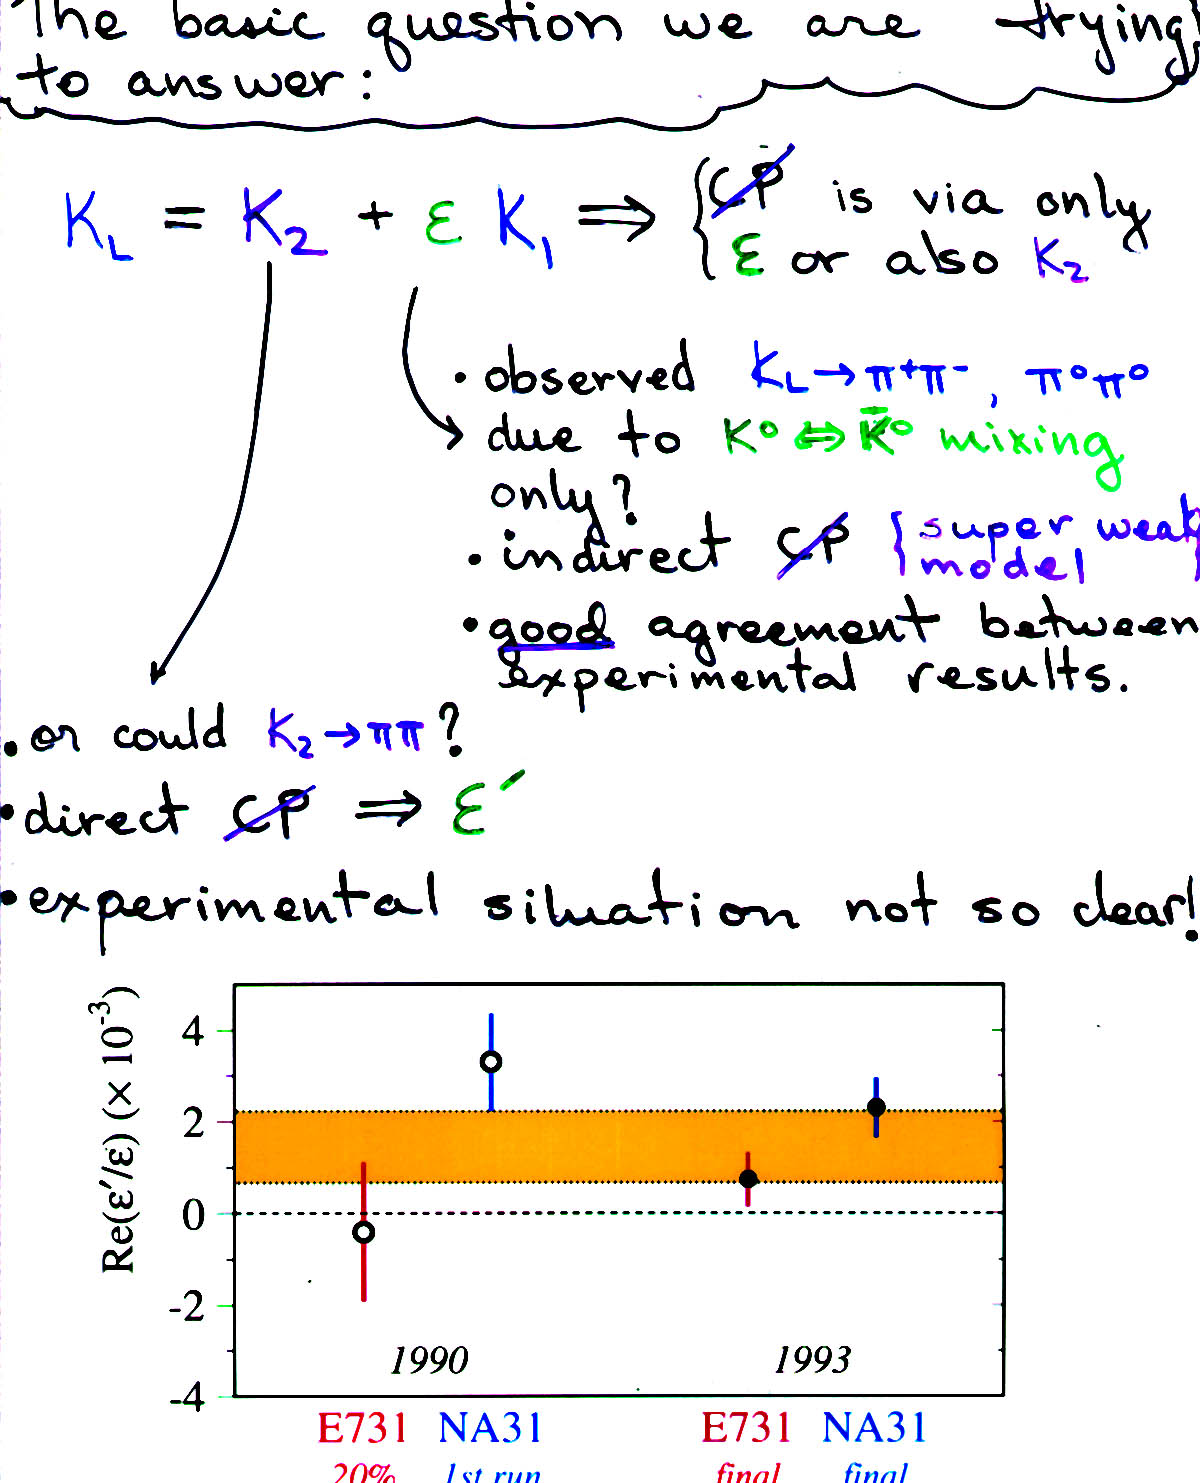 The basic question we are trying
to answer:
K_L = K_2 + ε K_1 ⇒ { C̸P̸ is via only
ε or also K_2
• observed K_L → π⁺π⁻, π⁰π⁰
due to K⁰ ⇔ K̄⁰ mixing
only?
• indirect C̸P̸ { super weak
model }
• good agreement between
experimental results.
• or could K_2 → ππ?
• direct C̸P̸ ⇒ ε′
• experimental situation not so clear!
Re(ε′/ε) (× 10⁻³)
4
2
0
-2
-4
1990 1993
E731 NA31 E731 NA31
20% 1st run final final